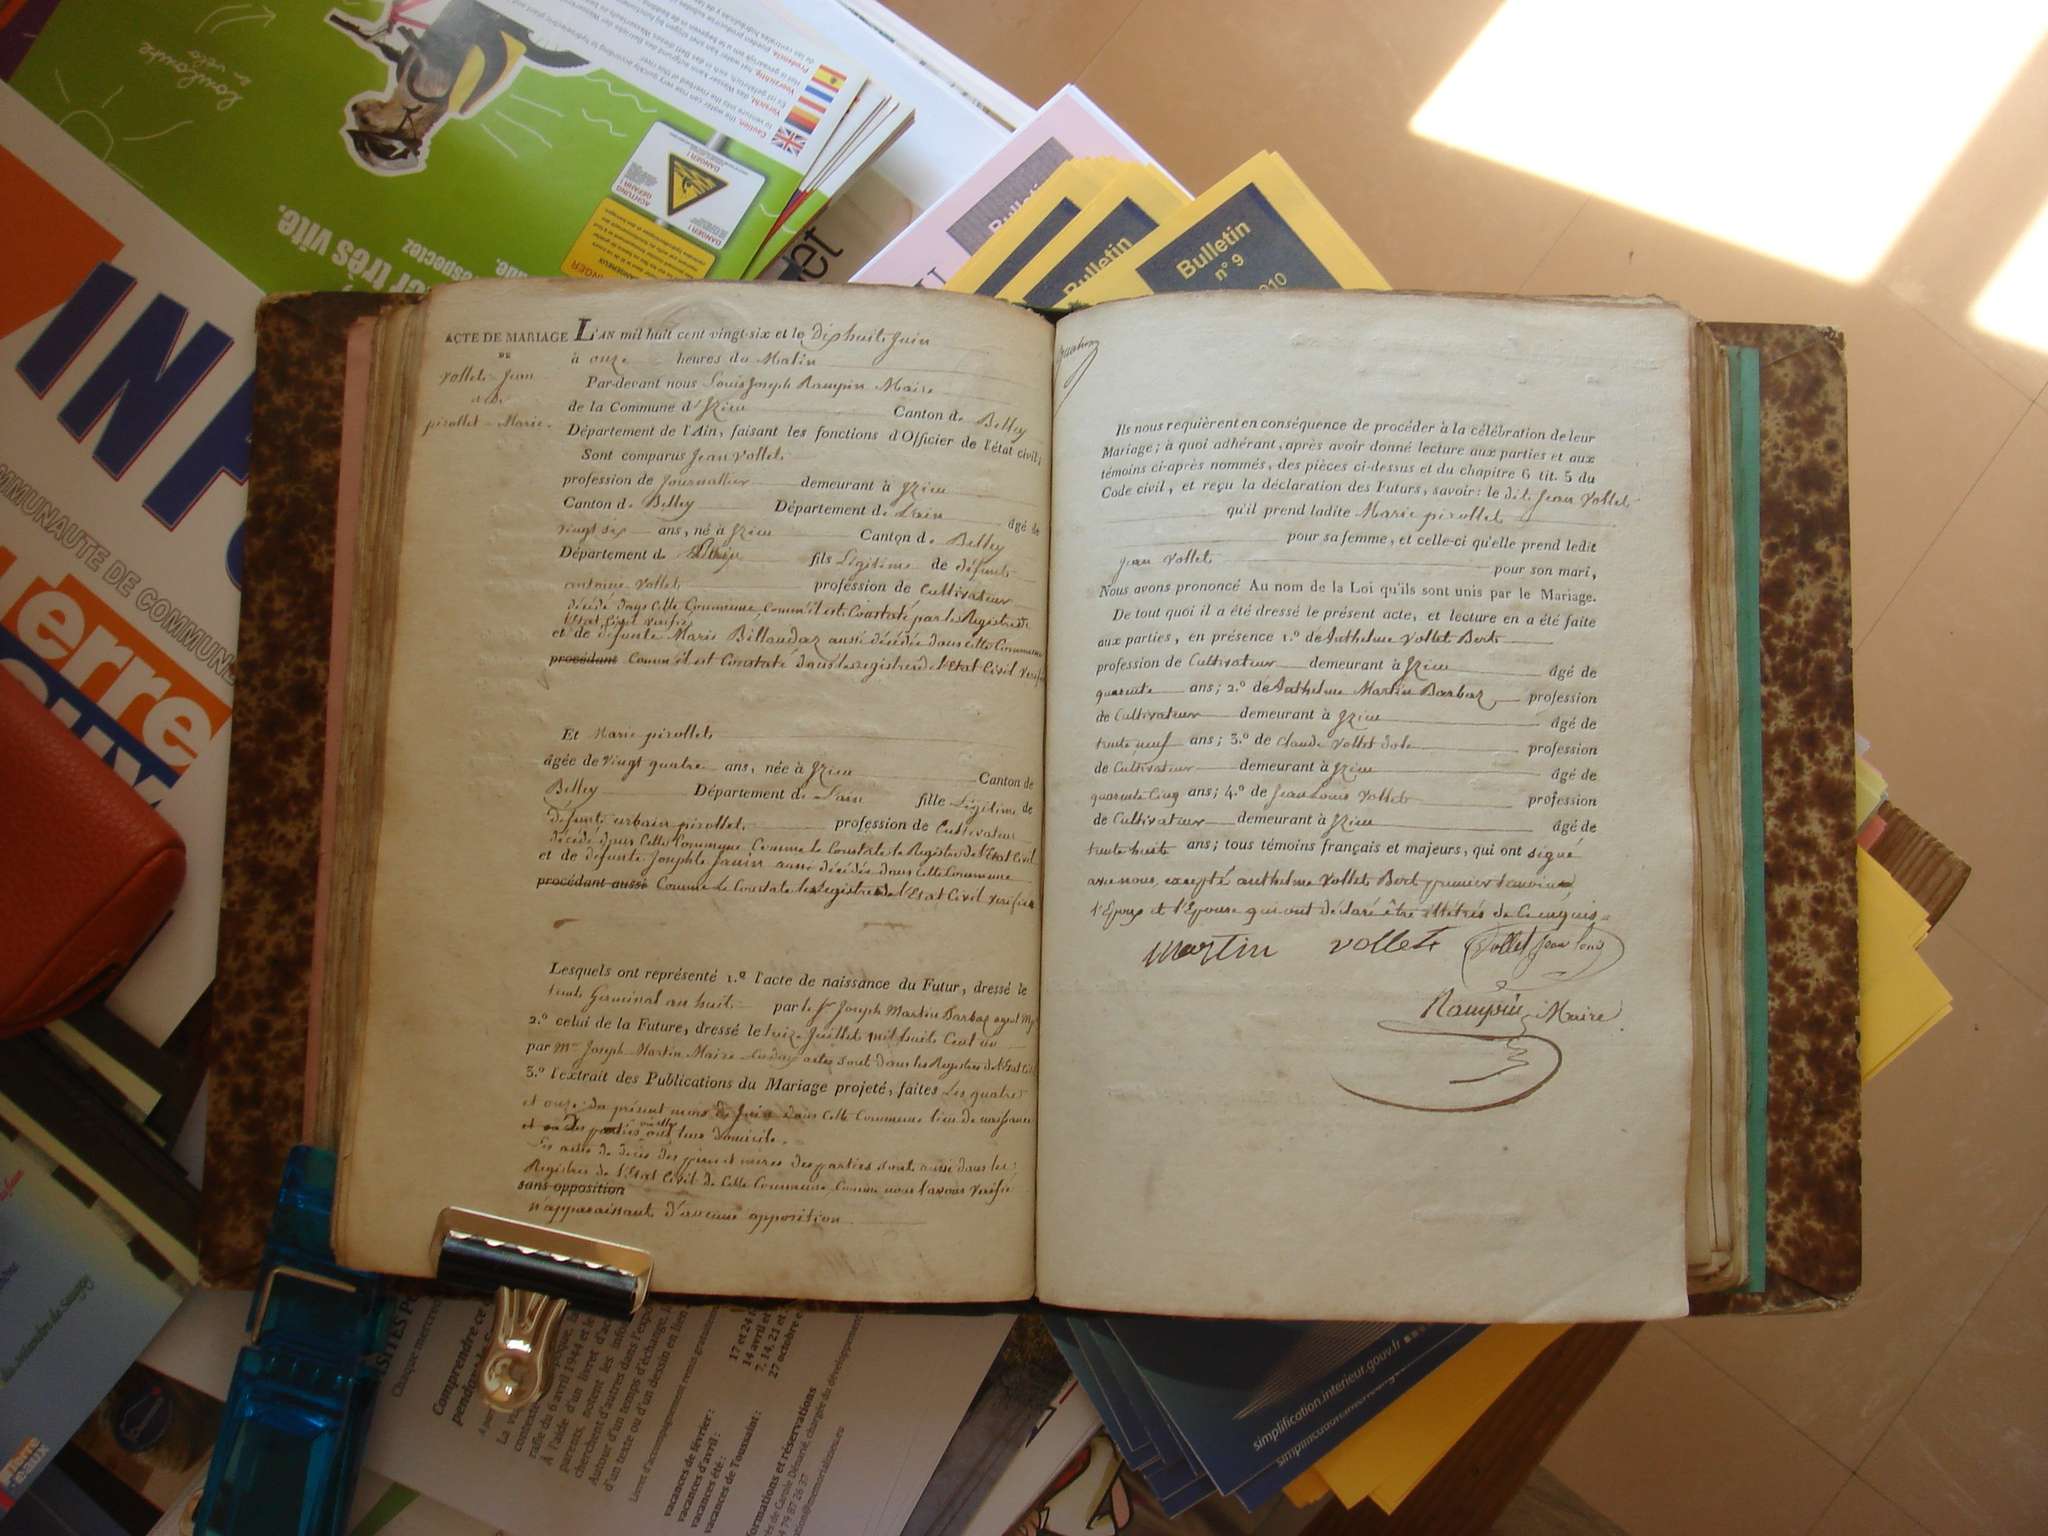 ACTE DE MARIAGE
DE
Vollet Jean
avec
pirollet Marie.
L'AN mil huit cent vingt-six et le Dix huit Juin
à onze heures du Matin
Par-devant nous Louis Joseph Rampin Maire
de la Commune d'Izieu Canton de Belley
Département de l'Ain, faisant les fonctions d'Officier de l'état civil;
Sont comparus Jean Vollet
profession de Journallier demeurant à Izieu
Canton de Belley Département de L'ain âgé de
vingt six ans, né à Izieu Canton de Belley
Département de fils Légitime de défunt
antoine Vollet profession de Cultivateur
décédé dans Cette Commune Comm'il est Constaté par le Registre de
l'Etat Civil vérifié
et de défunte Marie Billoudaz aussi décédée dans cette Commune
procédant Comm'il est Constaté dans les registres de l'Etat Civil verifié
Et Marie pirollet
âgée de vingt quatre ans, née à Izieu Canton de
Belley Département de L'ain fille Légitime de
défunt urbain pirollet profession de Cultivateur
décédé dans Cette Commune Comme le Constate le Registre de l'Etat Civil
et de défunte Josephte Janin aussi décédée dans cette Commune
procédant aussi Comme Le Constate les Registres de l'Etat Civil verifié
Lesquels ont représenté 1.º l'acte de naissance du Futur, dressé le
trente Germinal an huit par le Sr Joseph Martin Barbaz agent
2.º celui de la Future, dressé le treize Juillet mil huit Cent un
par Mr Joseph Martin Maire actes sont dans les Registres de l'Etat Civil
3.º l'extrait des Publications du Mariage projeté, faites Les quatre
et onze du présent mois de Juin dans cette Commune lieu de naissance
et où les parties ont leur domicile.
Les actes de décès des pères et mères des parties sont aussi dans les
Registres de l'Etat Civil de Cette Commune Comme nous l'avons vérifié
sans opposition
n'apparaissant d'aucune opposition
Ils nous requièrent en conséquence de procéder à la célébration de leur
Mariage; à quoi adhérant, après avoir donné lecture aux parties et aux
témoins ci-après nommés, des pièces ci-dessus et du chapitre 6 tit. 5 du
Code civil, et reçu la déclaration des Futurs, savoir: le dit Jean Vollet
qu'il prend ladite Marie pirollet
pour sa femme, et celle-ci qu'elle prend ledit
jean Vollet pour son mari,
Nous avons prononcé Au nom de la Loi qu'ils sont unis par le Mariage.
De tout quoi il a été dressé le présent acte, et lecture en a été faite
aux parties, en présence 1.º de Anthelme Vollet Bert
profession de Cultivateur demeurant à Izieu âgé de
quarante ans; 2.º de Anthelme Martin Barbaz profession
de Cultivateur demeurant à Izieu âgé de
trente neuf ans; 3.º de Claude Vollet profession
de Cultivateur demeurant à Izieu âgé de
quarante Cinq ans; 4.º de Jean Louis Vollet profession
de Cultivateur demeurant à Izieu âgé de
trente huit ans; tous témoins français et majeurs, qui ont signé
avec nous, excepté anthelme Vollet Bert premier temoin
l'Epoux et l'Epouse qui ont déclaré être illétrés de Ce enquis
martin vollet Vollet jean louis
Rampin Maire
Bulletin
n° 9
Bulletin
très vite.
respectez
Caution,
DANGER !
ACHTUNG
GEFAHR !
DANGER !
COMMUNAUTE DE COMMUN
simplification.interieur.gouv.fr
Chaque mercredi
Comprendre ce
rafle du 6 avril 1944 et le
À l'aide d'un livret d'ac
parents, notent les infor
cherchent d'autres dans l'expo
Autour d'un temps d'échange,
d'un texte ou d'un dessin en lien
Livret d'accompagnement remis gratuitement
vacances de février :
vacances d'avril :
vacances été :
vacances de Toussaint :
17 et 24
14 avril et
7, 14, 21 et
27 octobre
formations et réservations
chargée du développement